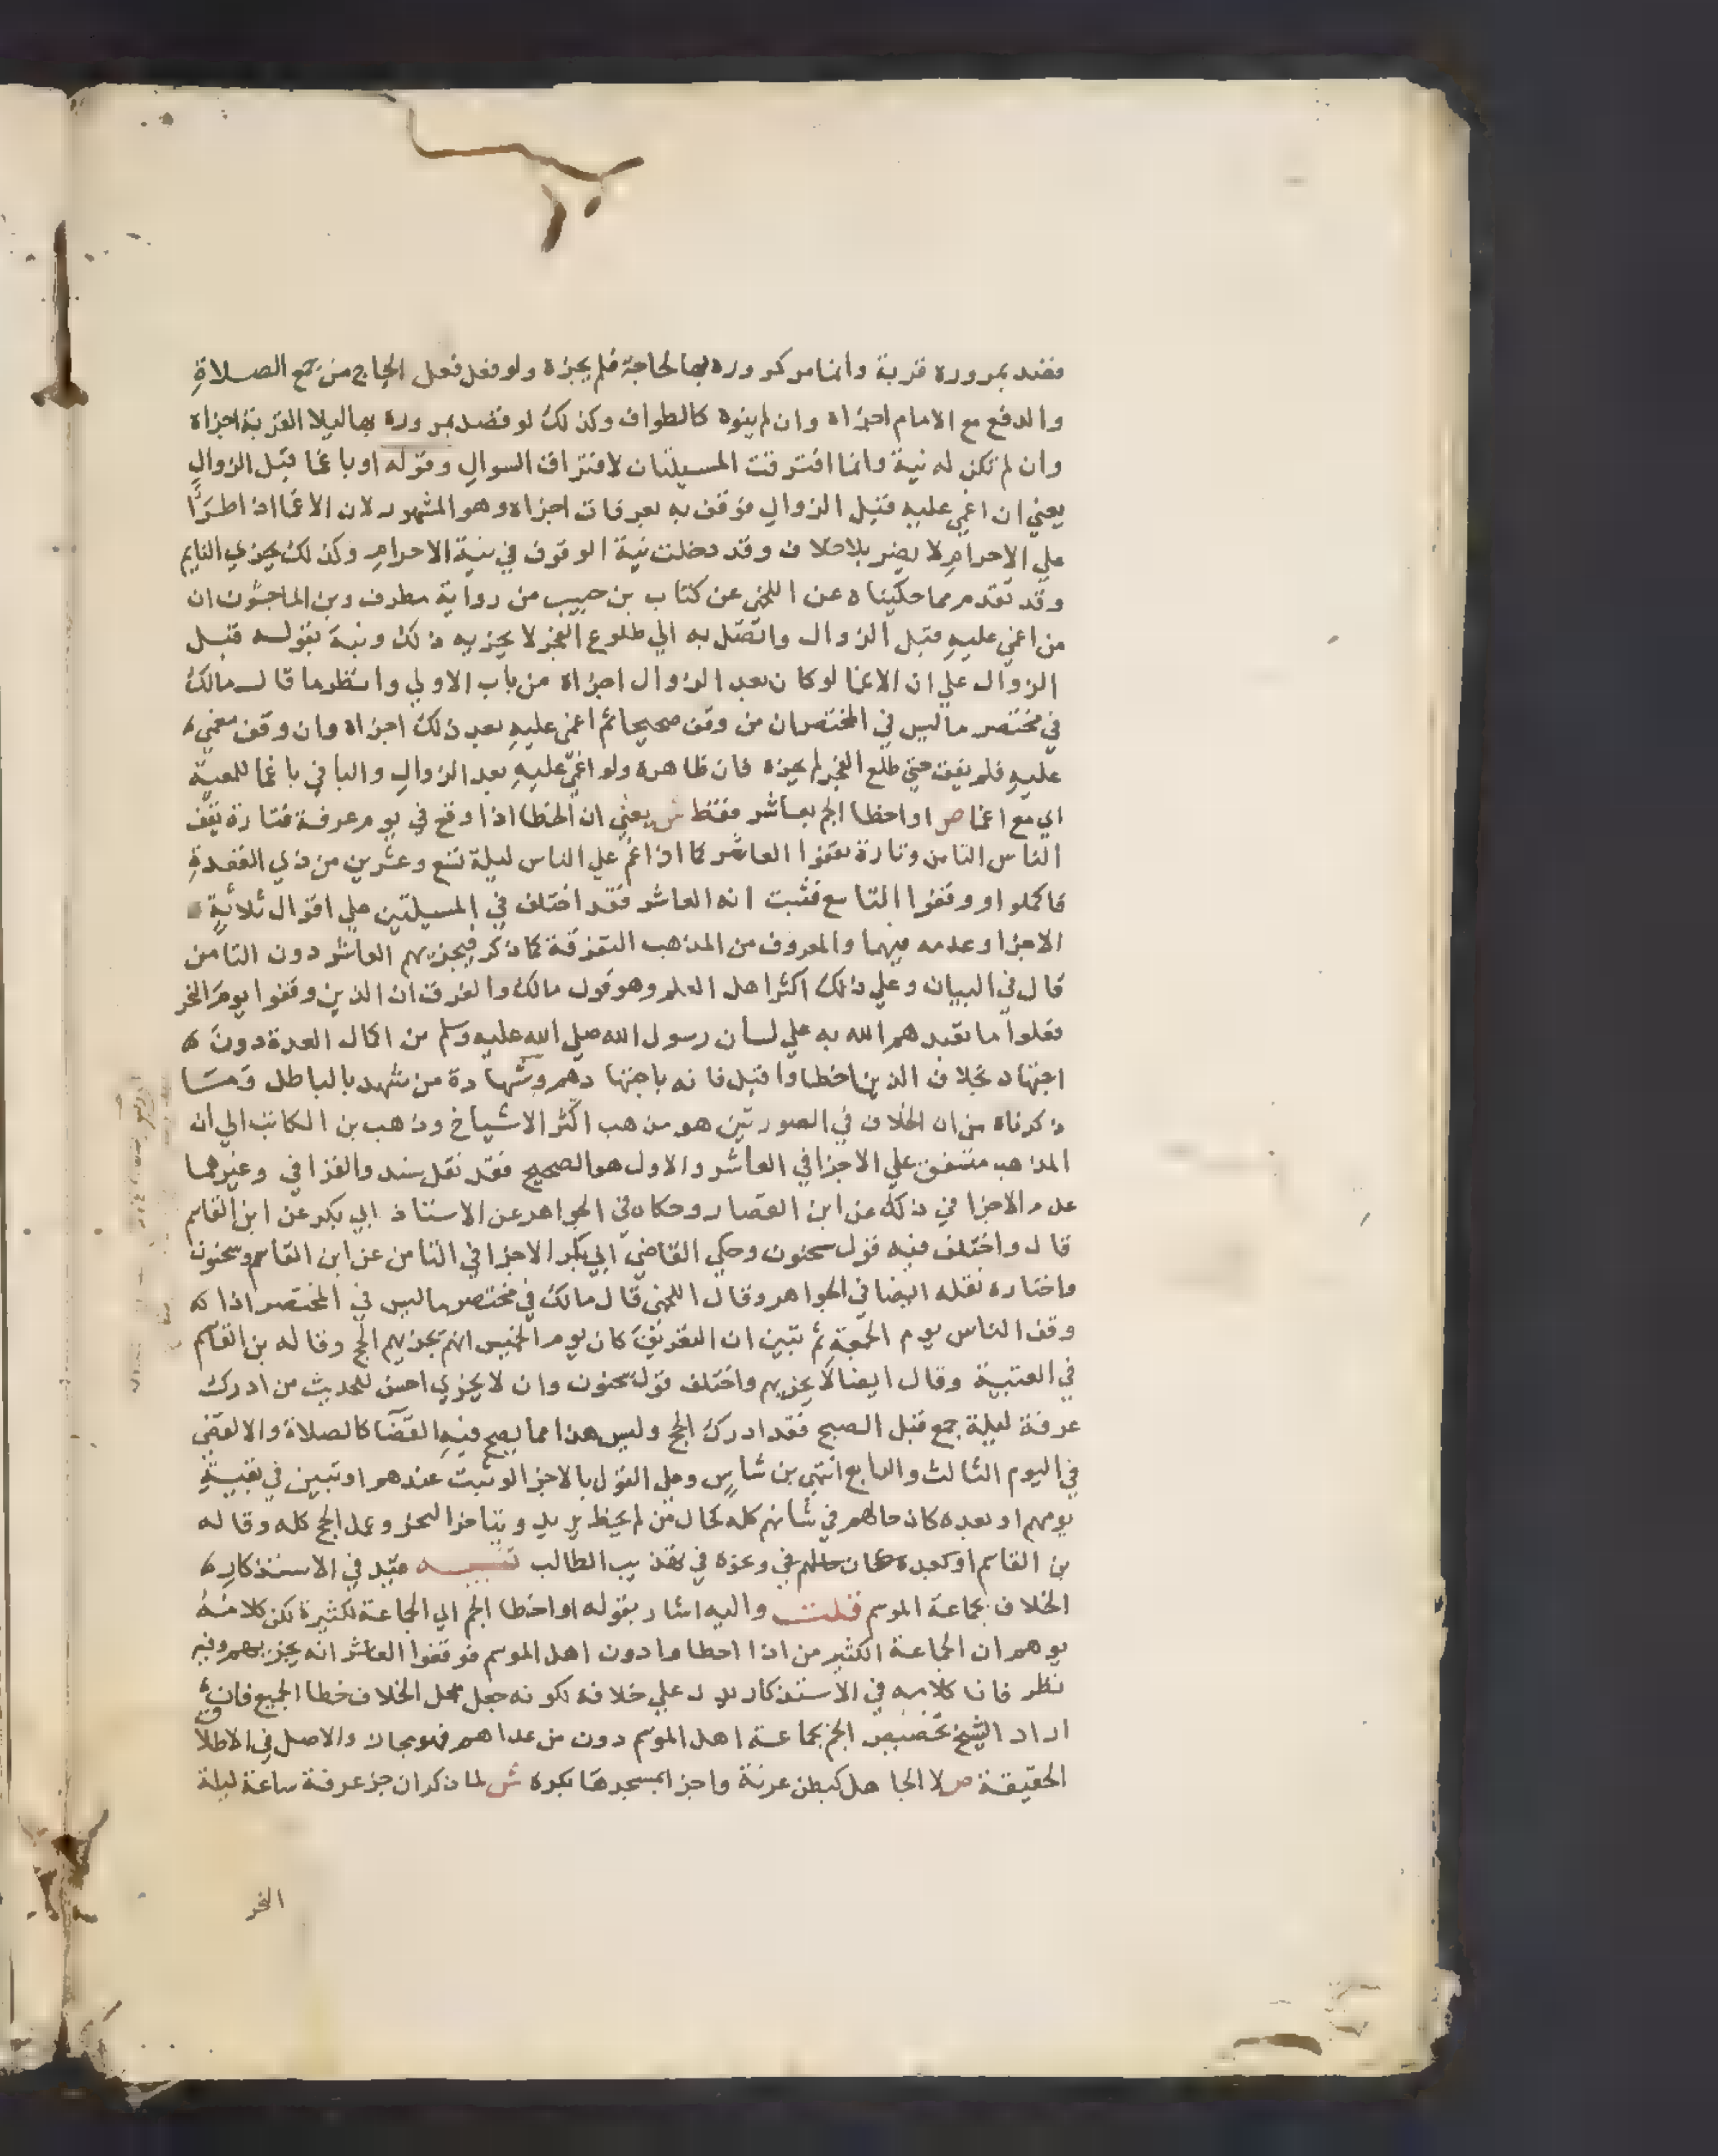 فقند بمروره قربة وانما مر كمروره بها لحاجة فلم يجزه ولو فعل فعل الحاج من جمع الصلاة
والدفع مع الامام اجزاه وان لم ينوه كالطواف وكذلك لو قصد بمروره بها ليلا القربة اجزاه
وان لم تكن له نية وانما افترقت المسيلتان لافتراق السوال وقوله او باغما قبل الزوال
يعني ان اغمي عليه قبل الزوال فوقف به بعرفات اجزاه وهو المشهور لان الاغما اذا طرا
علي الاحرام لا يضر بلا خلاف وقد دخلت نية الوقوف في نية الاحرام وكذلك يجزي النايم
وقد تقدم مما حكيناه عن اللخمي عن كتاب بن حبيب من رواية مطرف وبن الماجشون ان
من اغمي عليه قبل الزوال واتصل به الي طلوع الفجر لا يجزيه ذلك ونبه بقوله قبل
الزوال علي ان الاغما لو كان بعد الزوال اجزاه من باب الاولي وانظر ما قال مالك
في مختصر ما ليس في المختصر ان من وقف صحيحا ثم اغمي عليه بعد ذلك اجزاه وان وقف مغمي
عليه فلم يفق حتي طلع الفجر لم يجزه فان ظاهره ولو اغمي عليه بعد الزوال والبا في باغما للمعية
اي مع اغما ص او اخطا الجم بعاشر فقط ش يعني ان الخطا اذا وقع في يوم عرفة فتارة تقف
الناس الثامن وتارة يقفوا العاشر كما اذا غم علي الناس ليلة تسع وعشرين من ذي القعدة
فاكملوا ووقفوا التاسع فثبت انه العاشر فقد اختلف في المسيلتين علي اقوال ثلاثة
الاجزا وعدمه فيهما والمعروف من المذهب التفرقة كما ذكر فيجزيهم العاشر دون الثامن
قال في البيان وعلي ذلك اكثر اهل العلم وهو قول مالك والفرق ان الذين وقفوا يوم النحر
فعلوا ما تعبدهم الله به علي لسان رسول الله صلي الله عليه وسلم من اكمال العدة دون
اجتهاد بخلاف الذين اخطاوا قبل فانه باجتهادهم وشهادة من شهد بالباطل وما
ذكرناه من ان الخلاف في الصورتين هو مذهب اكثر الاشياخ وذهب بن الكاتب الي ان
المذاهب متفق علي الاجزا في العاشر والاول هو الصحيح فقد نقل سند والقرافي وغيرهما
عدم الاجزا في ذلك عن ابن القصار وحكاه في الجواهر عن الاستاذ ابي بكر عن ابن القاسم
قال واختلف فيه قول سحنون وحكي القاضي ابي بكر الاجزا في الثامن عن ابن القاسم وسحنون
واختاره نقله ايضا في الجواهر وقال اللخمي قال مالك في مختصر ما ليس في المختصر اذا
وقف الناس يوم الجمعة ثم تبين ان التعريف كان يوم الخميس انه يجزيهم الحج وقاله بن القاسم
في العتبية وقال ايضا لا يجزيهم واختلف قول سحنون وان لا يجزي احسن للحديث من ادرك
عرفة ليلة جمع قبل الصبح فقد ادرك الحج وليس هذا مما يصح فيه القضا كالصلاة والا لقضي
في اليوم الثالث والرابع انتهي بن شاس وعلي القول بالاجزا لو ثبت عندهم او تبين في بقية
يومهم او بعده كان حالهم في شانهم كله كحال من لم يخط يريد ويتاخر النحر وعمل الحج كله وقاله
بن القاسم او كبعده كان حالهم في وعزه في تهذيب الطالب تنبيه قيد في الاستذكار
الخلاف بجماعة الموسم قلت واليه اشار بقوله او اخطا الجم الي الجماعة لكثيرة لكن كلامه
يوهم ان الجماعة الكثير من اذا اخطا وا دون اهل الموسم فوقفوا العاشر انه يجزيهم وفيه
نظر فان كلامه في الاستذكار يدل علي خلافه لكونه جعل محل الخلاف خطا الجميع فان
اراد الشيخ تخصيص الجم بجماعة اهل الموسم دون من عداهم فهو مجاز والاصل في الاطلاق
الحقيقة ص لا الجاهل كبطن عرنة واجزا بمسجدها بكره ش لما ذكر ان جز عرفة ساعة ليلة
النحر